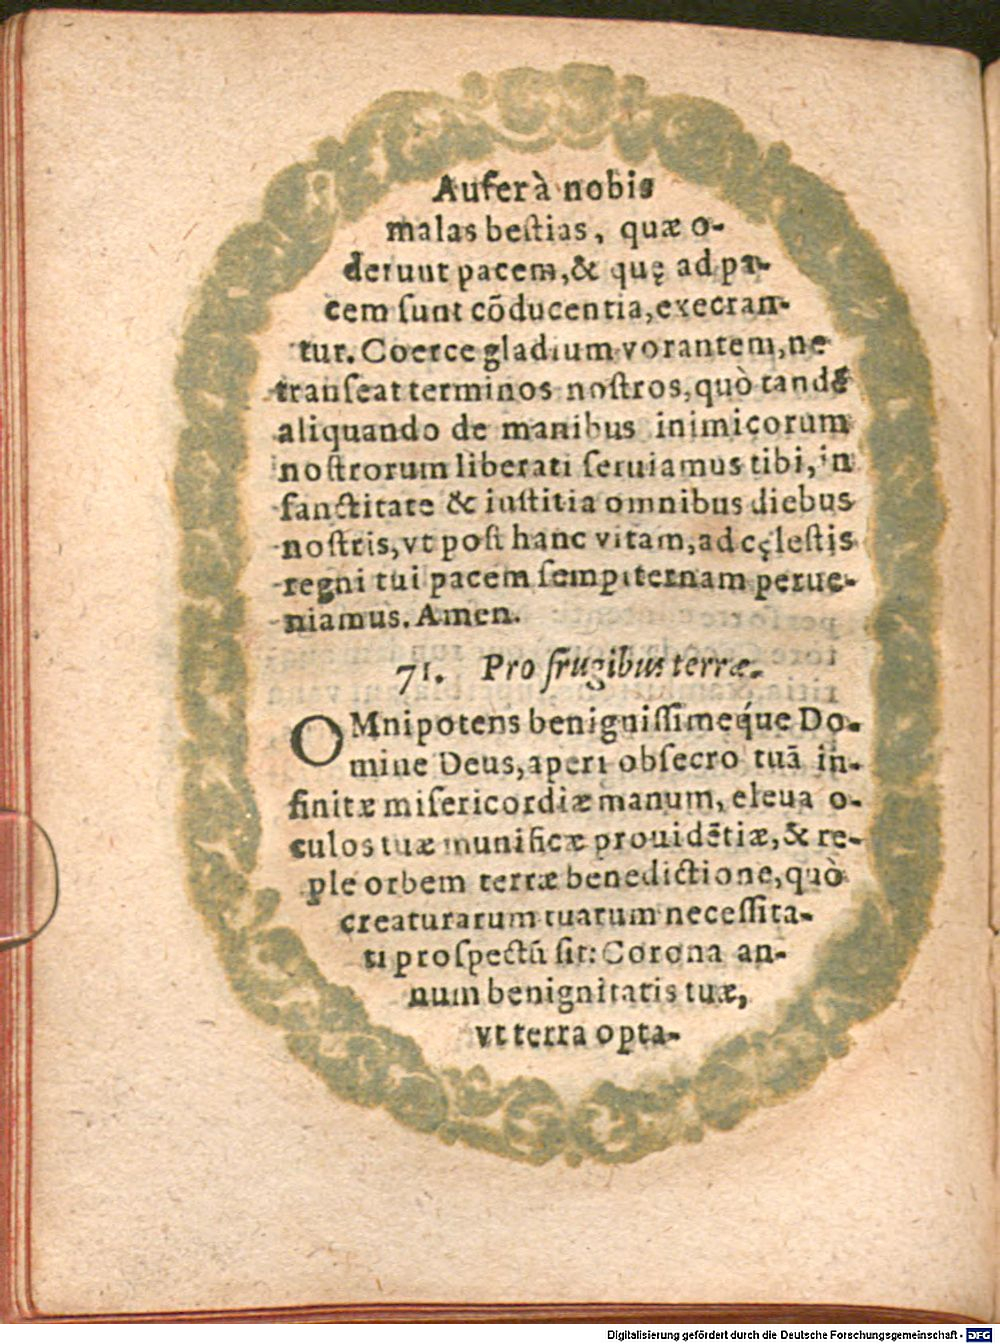 Auferà nobis
malas bestias, quæ o-
derunt pacem, & quę ad pa-
cem sunt cõducentia, execran-
tur. Coerce gladium vorantem, ne
transeat terminos nostros, quò tandẽ
aliquando de manibus inimicorum
nostrorum liberati seruiamus tibi, in
sanctitate & iustitia omnibus diebus
nostris, vt post hanc vitam, ad cęlestis
regni tui pacem sempiternam perue-
niamus. Amen.
71. Pro frugibus terræ.
OMnipotens benignissimeq́ue Do-
mine Deus, aperi obsecro tuã in-
finitæ misericordiæ manum, eleua o-
culos tuæ munificæ prouidẽtiæ, & re-
ple orbem terræ benedictione, quò
creaturarum tuarum necessita-
ti prospectũ sit: Corona an-
num benignitatis tuæ,
vt terra opta-
Digitalisierung gefördert durch die Deutsche Forschungsgemeinschaft - DFG